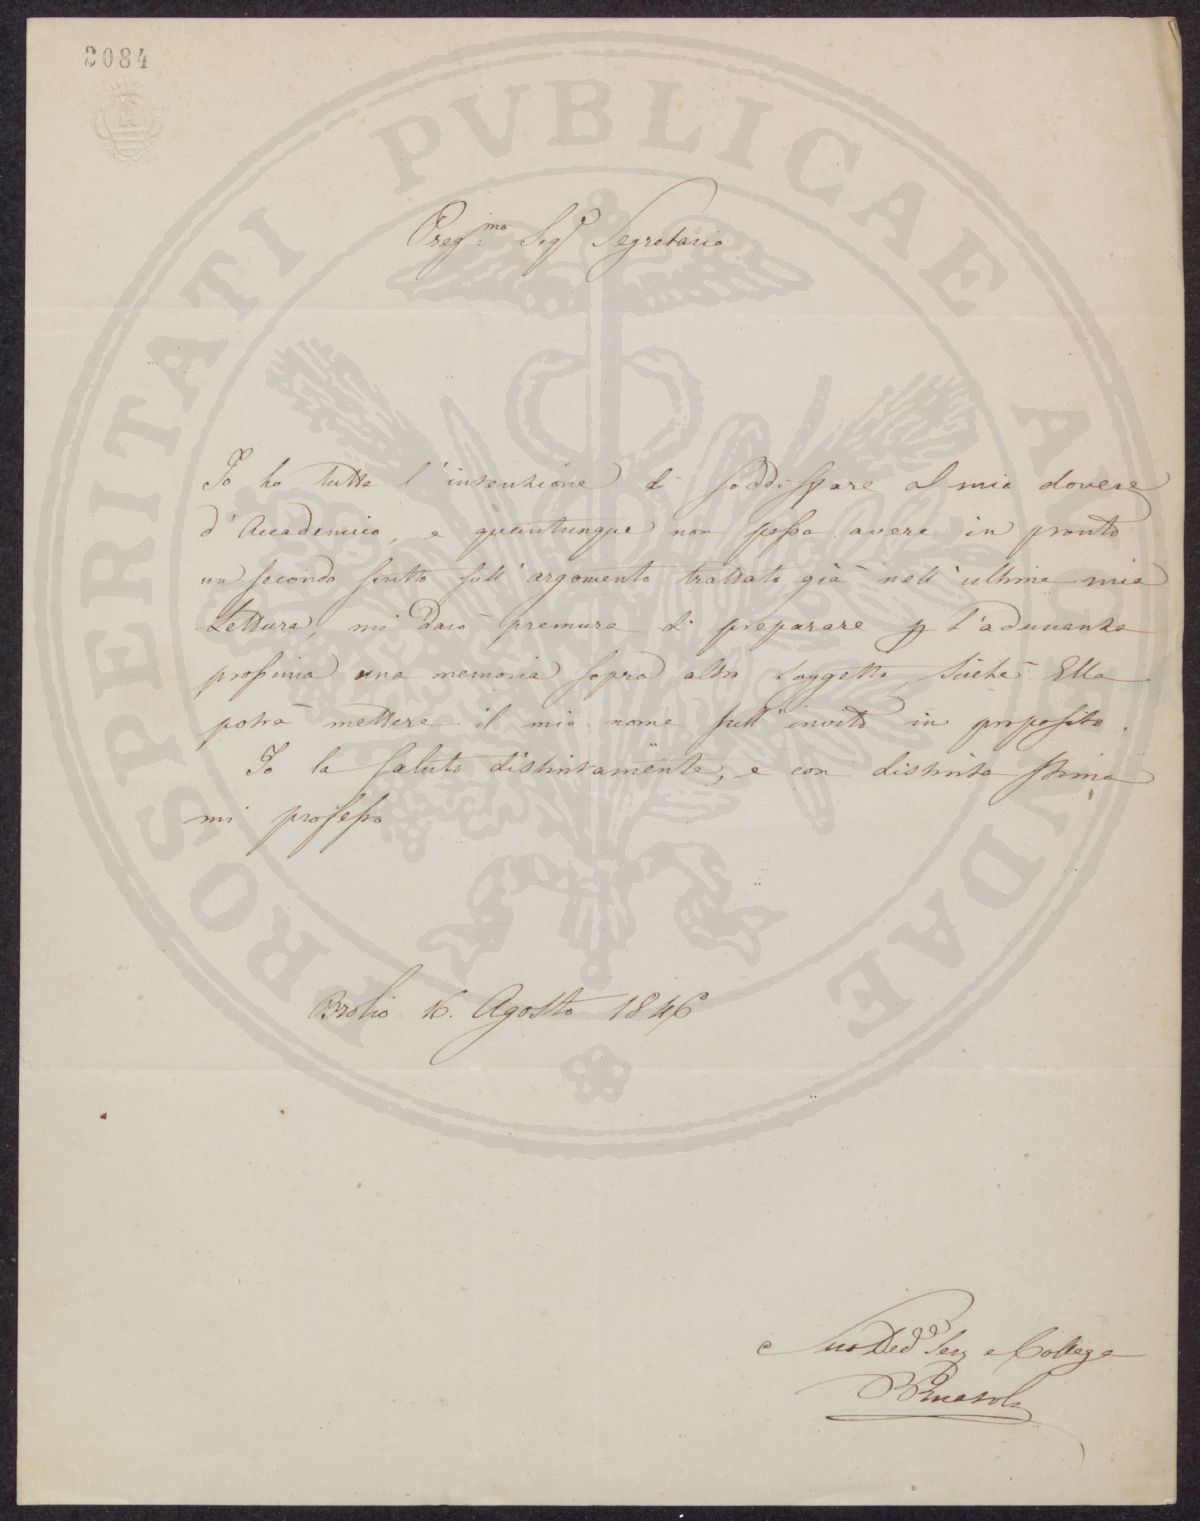 2084
PROSPERITATI PVBLICAE AVGENDAE
Preg.mo Sigr Segretario
Io ho tutta l'intenzione di soddisfare al mio dovere
d'Accademico, e quantunque non possa avere in pronto
un secondo scritto sull'argomento trattato già nell'ultima mia
Lettura, mi darò premura di preparare p l'adunanza
prossima una memoria sopra altro soggetto, sicchè Ella
potrà mettere il mio nome sull'invito in proposito.
Io la saluto distintamente, e con distinta stima
mi professo
Brolio 16. Agosto 1846
Suo Ded Ser e Collega